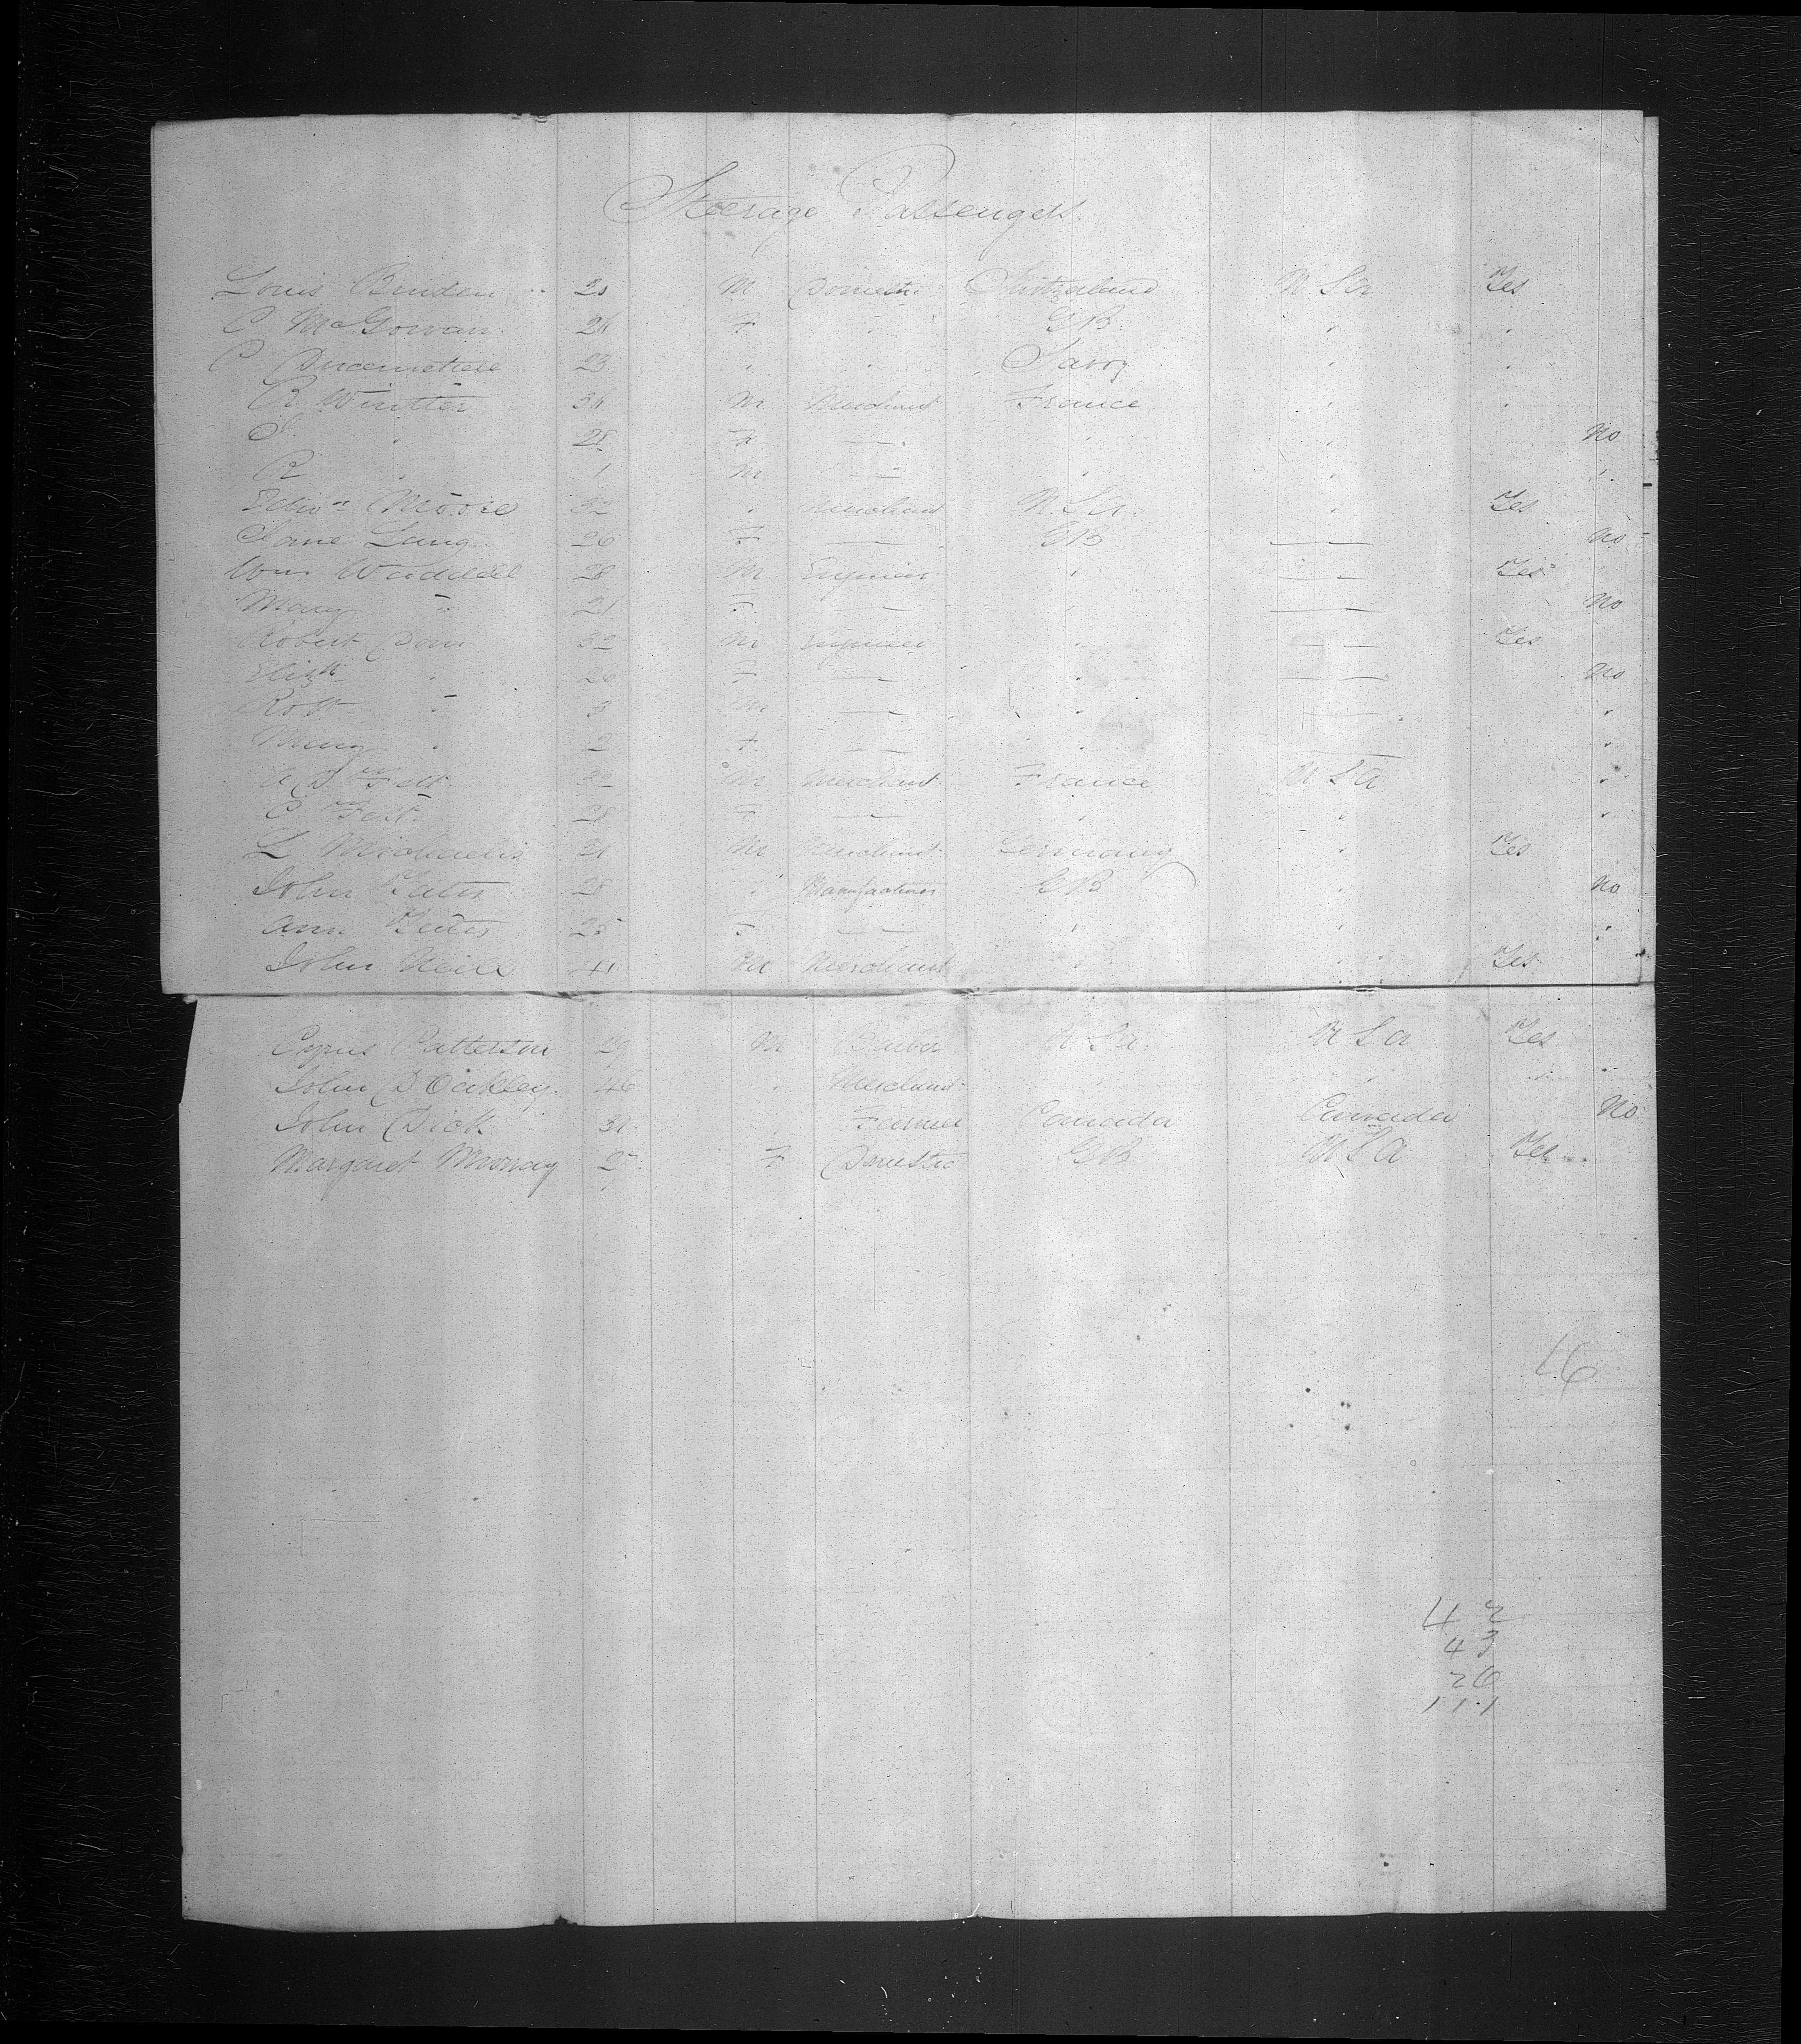 Steerage Passengers
Louis Bruden 20 M Domestic Switzerland U S A Yes
C McGowan 26 F " G B " "
C 23 " " Savoy " "
R Wintter 36 M Merchant France " "
S " 28 F — " " No
R " 1 M — " " "
Edwd Moore 32 " Merchant U.S.A. " Yes
Jane Lang 26 F — G B — No
Wm Waddell 28 M Engineer " — Yes
Mary " 21 F — " — No
Robert 32 M Engineer " — Yes
Elizth " 26 F — " — No
Robt " 3 M — " — "
Mary " 2 F — " — "
A D 32 M Merchant France U S A "
C 28 F — " " "
L Michaelis 21 M Merchant Germany " Yes
John Yates 28 " Manufacturer G B " No
Ann Yates 25 F — " " "
John Neill 41 M Merchant " " Yes
Cyrus Patterson 29 M Barber U S A U S A Yes
John D Oakley 46 " Merchant " " "
John Dick 31 Farmer Canada Canada No
Margaret Murray 27 F Domestic G B U S A Yes
16
42
43
26
111